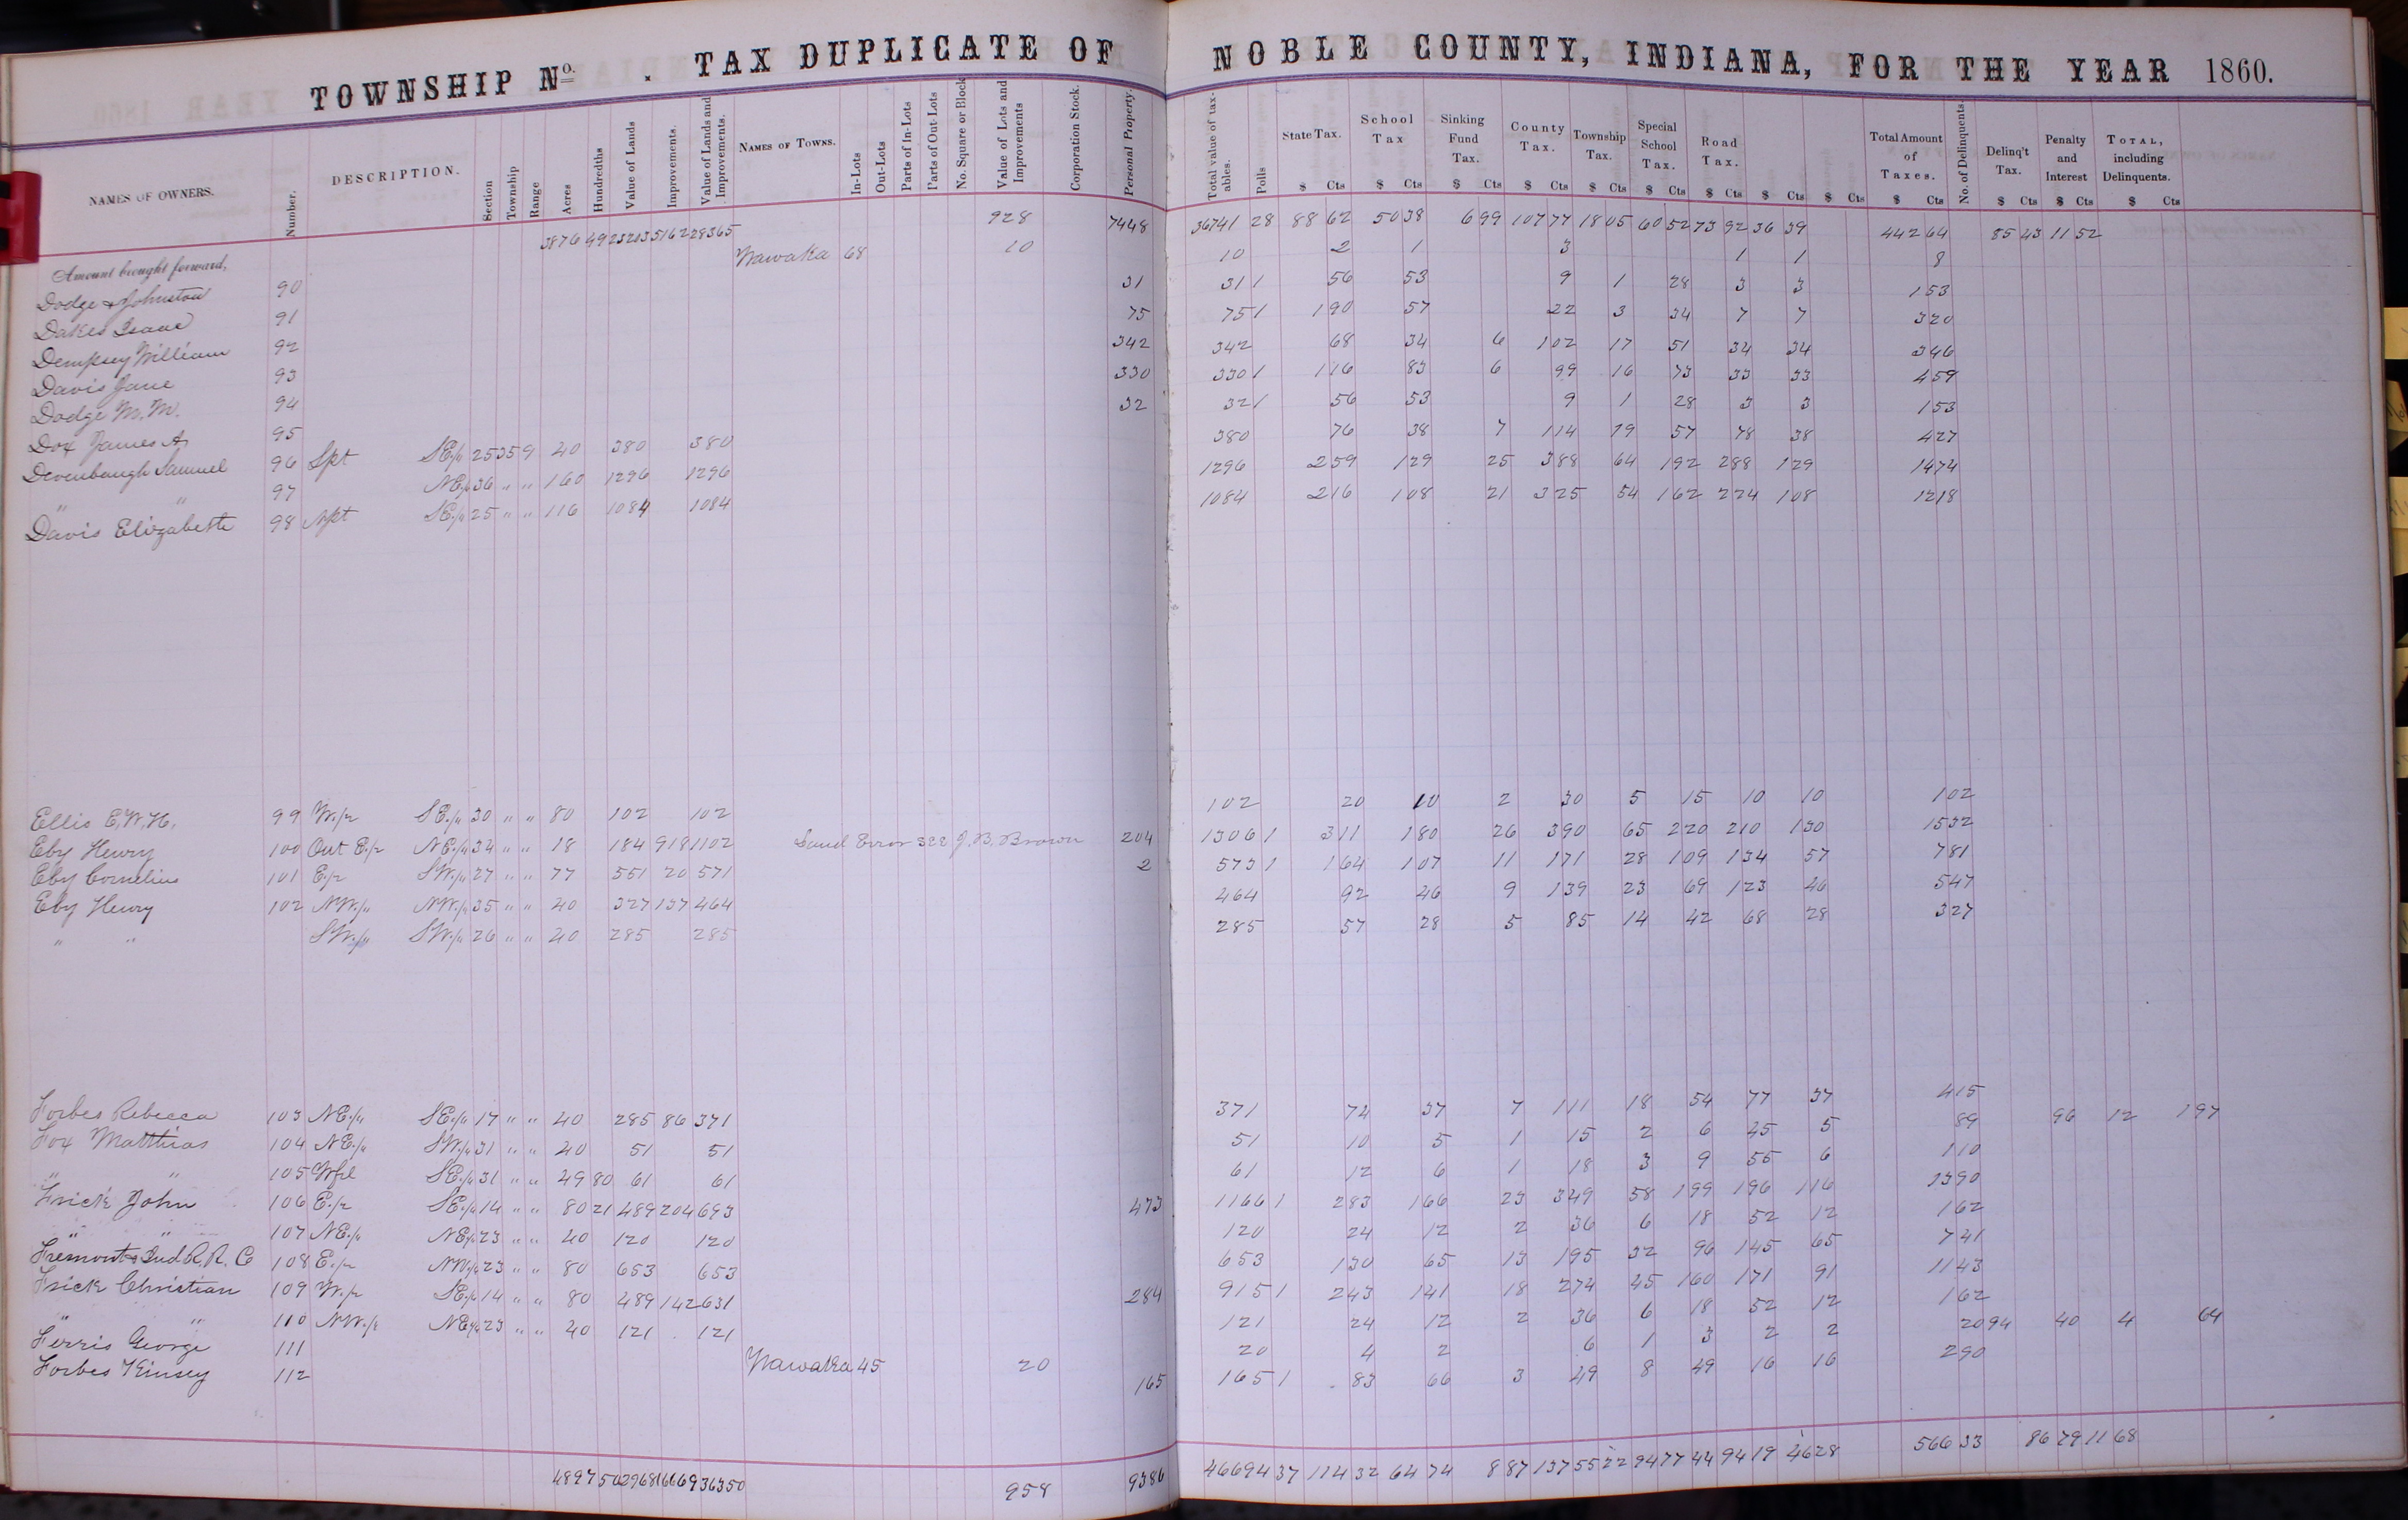 TOWNSHIP No. . TAX DUPLICATE OF NOBLE COUNTY, INDIANA, FOR THE YEAR 1860.
NAMES OF OWNERS. Number. DESCRIPTION. Section Township Range Acres Hundredths Value of Lands Improvements. Value of Lands and Improvements. NAMES OF TOWNS. In-Lots Out-Lots Parts of In-Lots Parts of Out-Lots No. Square or Block Value of Lots and Improvements Corporation Stock. Personal Property. Total value of taxables. Polls State Tax. School Tax Sinking Fund Tax. County Tax. Township Tax. Special School Tax. Road Tax. Total Amount of Taxes. No. of Delinquents. Delinq't Tax. Penalty and Interest TOTAL, including Delinquents.
$ Cts $ Cts $ Cts $ Cts $ Cts $ Cts $ Cts $ Cts $ Cts $ Cts $ Cts $ Cts $ Cts
Amount brought forward, 3876 49 23203 5162 28365 928 7448 36741 28 88 62 50 38 6 99 107 77 18 05 60 52 73 92 36 39 442 64 85 43 11 52
Dodge & Johnston 90 Wawaka 68 10 10 2 1 3 1 1 8
Dakes Isaac 91 31 31 1 56 53 9 1 28 3 3 1 53
Dempsey William 92 75 75 1 1 90 57 22 3 34 7 7 3 20
Davis Jane 93 342 342 68 34 6 1 02 17 51 34 34 3 46
Dodge M. M. 94 330 330 1 1 16 83 6 99 16 73 33 33 4 59
Dox James A 95 32 32 1 56 53 9 1 28 3 3 1 53
Devenbaugh Samuel 96 Spt SE/4 25 35 9 40 380 380 380 76 38 7 1 14 19 57 78 38 4 27
" " 97 NE/4 36 " " 160 1296 1296 1296 2 59 1 29 25 3 88 64 1 92 2 88 1 29 14 74
Davis Elizabeth 98 Npt SE/4 25 " " 116 1084 1084 1084 2 16 1 08 21 3 25 54 1 62 2 24 1 08 12 18
Ellis E. W. H. 99 W/2 SE/4 30 " " 80 102 102 102 20 10 2 30 5 15 10 10 1 02
Eby Henry 100 Out E/2 NE/4 34 " " 18 184 918 1102 Land Error see J. B. Brown 204 1306 1 3 11 1 80 26 3 90 65 2 20 2 10 1 30 15 32
Eby Cornelius 101 E/2 SW/4 27 " " 77 551 20 571 2 573 1 1 64 1 07 11 1 71 28 1 09 1 34 57 7 81
Eby Henry 102 NW/4 NW/4 35 " " 40 327 137 464 464 92 46 9 1 39 23 69 1 23 46 5 47
" " SW/4 SW/4 26 " " 40 285 285 285 57 28 5 85 14 42 68 28 3 27
Forbes Rebecca 103 NE/4 SE/4 17 " " 40 285 86 371 371 74 37 7 1 11 18 54 77 37 4 15
Fox Matthias 104 NE/4 SW/4 31 " " 40 51 51 51 10 5 1 15 2 6 45 5 89 96 12 1 97
" " 105 Wfrl SE/4 31 " " 49 80 61 61 61 12 6 1 18 3 9 55 6 1 10
Frick John 106 E/2 SE/4 14 " " 80 21 489 204 693 473 1166 1 2 83 1 66 23 3 49 58 1 99 1 96 1 16 13 90
" " 107 NE/4 NE/4 23 " " 40 120 120 120 24 12 2 36 6 18 52 12 1 62
Fremont & Ind R. R. Co 108 E/2 NW/4 23 " " 80 653 653 653 1 30 65 13 1 95 32 96 1 45 65 7 41
Frick Christian 109 W/2 SE/4 14 " " 80 489 142 631 284 915 1 2 43 1 41 18 2 74 45 1 60 1 71 91 11 43
" " 110 NW/4 NE/4 23 " " 40 121 121 121 24 12 2 36 6 18 52 12 1 62
Ferris George 111 Wawaka 45 20 20 4 2 6 1 3 2 2 20 94 40 4 64
Forbes Kinsey 112 165 165 1 83 66 3 49 8 49 16 16 2 90
4897 50 29681 6669 36350 958 9386 46694 37 114 32 64 74 8 87 137 55 22 94 77 44 94 19 46 28 566 33 86 79 11 68